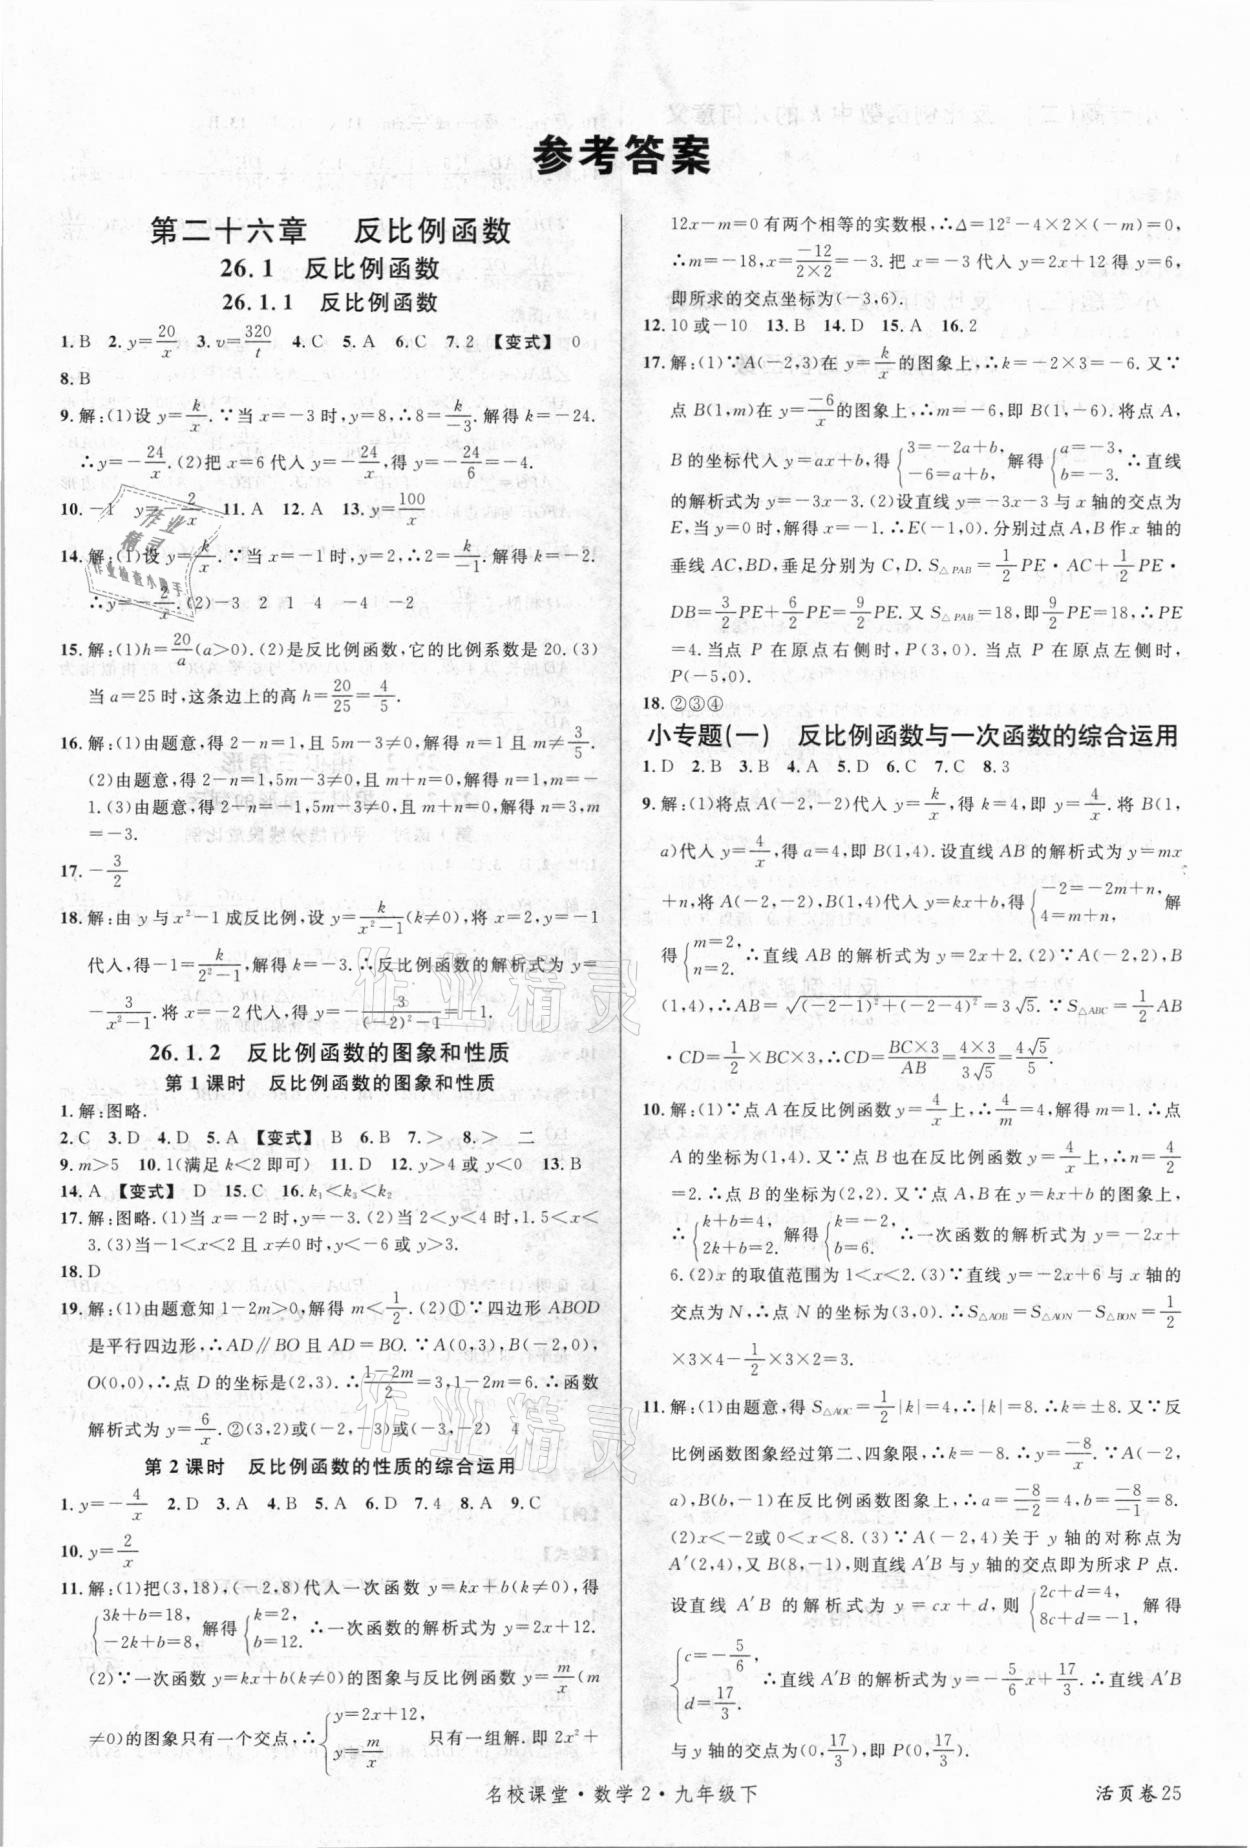 参考答案
第二十六章 反比例函数
26.1 反比例函数
26.1.1 反比例函数
1.B 2.y=20/x 3.v=320/t 4.C 5.A 6.C 7.2 【变式】 0
8.B
9.解:(1)设 y=k/x.∵当 x=-3 时,y=8,∴8=k/-3.解得 k=-24.
∴y=-24/x.(2)把 x=6 代入 y=-24/x,得 y=-24/6=-4.
10.-1 y=-2/x 11.A 12.A 13.y=100/x
14.解:(1)设 y=k/x.∵当 x=-1 时,y=2,∴2=k/-1.解得 k=-2.
∴y=-2/x.(2)-3 2 1 4 -4 -2
15.解:(1)h=20/a(a>0).(2)是反比例函数,它的比例系数是 20.(3)
当 a=25 时,这条边上的高 h=20/25=4/5.
16.解:(1)由题意,得 2-n=1,且 5m-3≠0,解得 n=1 且 m≠3/5.
(2)由题意,得 2-n=1,5m-3≠0,且 m+n=0,解得 n=1,m=-
1.(3)由题意,得 2-n=-1,5m-3=0,且 m+n=0,解得 n=3,m
=-3.
17.-3/2
18.解:由 y 与 x²-1 成反比例,设 y=k/(x²-1)(k≠0),将 x=2,y=-1
代入,得-1=k/(2²-1),解得 k=-3.∴反比例函数的解析式为 y=
-3/(x²-1).将 x=-2 代入,得 y=-3/((-2)²-1)=-1.
26.1.2 反比例函数的图象和性质
第 1 课时 反比例函数的图象和性质
1.解:图略.
2.C 3.D 4.D 5.A 【变式】 B 6.B 7.> 8.> 二
9.m>5 10.1(满足 k<2 即可) 11.D 12.y>4 或 y<0 13.B
14.A 【变式】 D 15.C 16.k₁<k₃<k₂
17.解:图略.(1)当 x=-2 时,y=-3.(2)当 2<y<4 时,1.5<x<
3.(3)当-1<x<2 且 x≠0 时,y<-6 或 y>3.
18.D
19.解:(1)由题意知 1-2m>0,解得 m<1/2.(2)①∵四边形 ABOD
是平行四边形,∴AD∥BO 且 AD=BO.∵A(0,3),B(-2,0),
O(0,0),∴点 D 的坐标是(2,3).∴(1-2m)/2=3,1-2m=6.∴函数
解析式为 y=6/x.②(3,2)或(-2,-3)或(-3,-2) 4
第 2 课时 反比例函数的性质的综合运用
1.y=-4/x 2.D 3.A 4.B 5.A 6.D 7.4 8.A 9.C
10.y=2/x
11.解:(1)把(3,18),(-2,8)代入一次函数 y=kx+b(k≠0),得
{3k+b=18, -2k+b=8, 解得 {k=2, b=12. ∴一次函数的解析式为 y=2x+12.
(2)∵一次函数 y=kx+b(k≠0)的图象与反比例函数 y=m/x(m
≠0)的图象只有一个交点,∴{y=2x+12, y=m/x 只有一组解.即 2x²+
12x-m=0 有两个相等的实数根,∴Δ=12²-4×2×(-m)=0,
∴m=-18,x=-12/(2×2)=-3.把 x=-3 代入 y=2x+12 得 y=6,
即所求的交点坐标为(-3,6).
12.10 或-10 13.B 14.D 15.A 16.2
17.解:(1)∵A(-2,3)在 y=k/x的图象上,∴k=-2×3=-6.又∵
点 B(1,m)在 y=-6/x的图象上,∴m=-6,即 B(1,-6).将点 A,
B 的坐标代入 y=ax+b,得{3=-2a+b, -6=a+b, 解得{a=-3, b=-3. ∴直线
的解析式为 y=-3x-3.(2)设直线 y=-3x-3 与 x 轴的交点为
E,当 y=0 时,解得 x=-1.∴E(-1,0).分别过点 A,B 作 x 轴的
垂线 AC,BD,垂足分别为 C,D.S△PAB=1/2PE·AC+1/2PE·
DB=3/2PE+6/2PE=9/2PE.又 S△PAB=18,即9/2PE=18,∴PE
=4.当点 P 在原点右侧时,P(3,0).当点 P 在原点左侧时,
P(-5,0).
18.②③④
小专题(一) 反比例函数与一次函数的综合运用
1.D 2.B 3.B 4.A 5.D 6.C 7.C 8.3
9.解:(1)将点 A(-2,-2)代入 y=k/x,得 k=4,即 y=4/x.将 B(1,
a)代入 y=4/x,得 a=4,即 B(1,4).设直线 AB 的解析式为 y=mx
+n,将 A(-2,-2),B(1,4)代入 y=kx+b,得{-2=-2m+n, 4=m+n, 解
得{m=2, n=2. ∴直线 AB 的解析式为 y=2x+2.(2)∵A(-2,2),B
(1,4),∴AB=√((-2-1)²+(-2-4)²)=3√5.∵S△ABC=1/2AB
·CD=1/2×BC×3,∴CD=BC×3/AB=4×3/3√5=4√5/5.
10.解:(1)∵点 A 在反比例函数 y=4/x上,∴4/m=4,解得 m=1.∴点
A 的坐标为(1,4).又∵点 B 也在反比例函数 y=4/x上,∴n=4/2
=2.∴点 B 的坐标为(2,2).又∵点 A,B 在 y=kx+b 的图象上,
∴{k+b=4, 2k+b=2. 解得{k=-2, b=6. ∴一次函数的解析式为 y=-2x+
6.(2)x 的取值范围为 1<x<2.(3)∵直线 y=-2x+6 与 x 轴的
交点为 N,∴点 N 的坐标为(3,0).∴S△AOB=S△AON-S△BON=1/2
×3×4-1/2×3×2=3.
11.解:(1)由题意,得 S△AOC=1/2|k|=4,∴|k|=8.∴k=±8.又∵反
比例函数图象经过第二、四象限,∴k=-8.∴y=-8/x.∵A(-2,
a),B(b,-1)在反比例函数图象上,∴a=-8/-2=4,b=-8/-1=8.
(2)x<-2或 0<x<8.(3)∵A(-2,4)关于 y 轴的对称点为
A′(2,4),又 B(8,-1),则直线 A′B 与 y 轴的交点即为所求 P 点.
设直线 A′B 的解析式为 y=cx+d,则{2c+d=4, 8c+d=-1, 解得
{c=-5/6, d=17/3. ∴直线 A′B 的解析式为 y=-5/6x+17/3.∴直线 A′B
与 y 轴的交点为(0,17/3),即 P(0,17/3).
名校课堂·数学 2·九年级下
活页卷 25
作业精灵
作业检查小助手
作业精灵
作业精灵